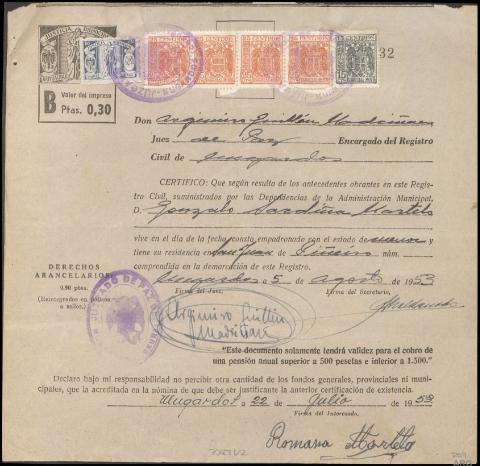 JUSTICIA
32
B Valor del impreso
Ptas. 0,30
Don Argimiro Guillén Madriñan
Juez de Paz Encargado del Registro
Civil de Mugardos
CERTIFICO: Que según resulta de los antecedentes obrantes en este Regis-
tro Civil, suministrados por las Dependencias de la Administración Municipal,
D. Gonzalo Sardina Martelo
vive en el día de la fecha, consta empadronado con el estado de y
tiene su residencia en San Juan de Piñeiro núm.
comprendida en la demarcación de este Registro.
DERECHOS
ARANCELARIOS
0,90 ptas.
(Reintegrados en pólizas
a más.)
Mugardos a 5 de agosto de 1953
Firma del Juez. Firma del Secretario.
JUZGADO DE PAZ
Argimiro Guillén
Madriñan
"Este documento solamente tendrá validez para el cobro de
una pensión anual superior a 500 pesetas e inferior a 1.500."
Declaro bajo mi responsabilidad no percibir otra cantidad de los fondos generales, provinciales ni muni-
cipales, que la acreditada en la nómina de que debe ser justificante la anterior certificación de existencia.
Mugardos a 22 de Julio de 1953
Firma del Interesado.
Romana Martelo